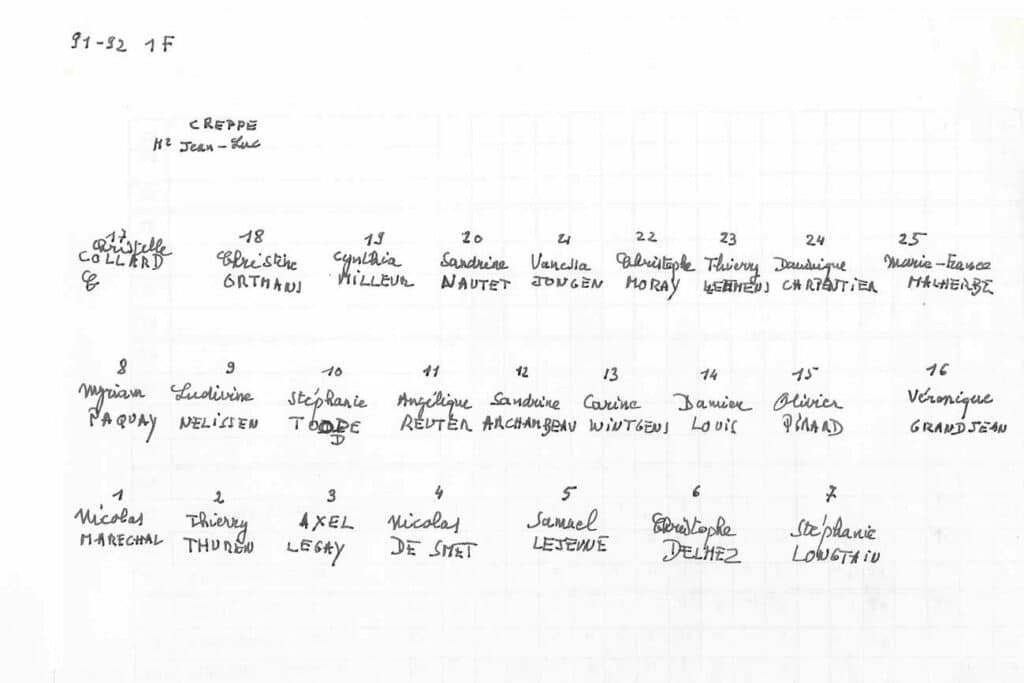 91-92 1F
CREPPE
Mr Jean-Luc
17 18 19 20 21 22 23 24 25
Christelle Christine Cynthia Sandrine Vanessa Christophe Thierry Dominique Marie-France
COLLARD ORTMANS WILLEUR NAUTET JONGEN MORAY LEEMENS CARPENTIER MALHERBE
8 9 10 11 12 13 14 15 16
Myriam Ludivine Stéphanie Angélique Sandrine Carine Damien Olivier Véronique
PAQUAY NELISSEN REUTER ARCHAMBEAU WINTGENS LOUIS PIRARD GRANDJEAN
1 2 3 4 5 6 7
Nicolas Thierry AXEL Nicolas Samuel Christophe Stéphanie
MARECHAL THUREN LEGAY DE SMET LEJEUNE DELHEZ LONGTAIN